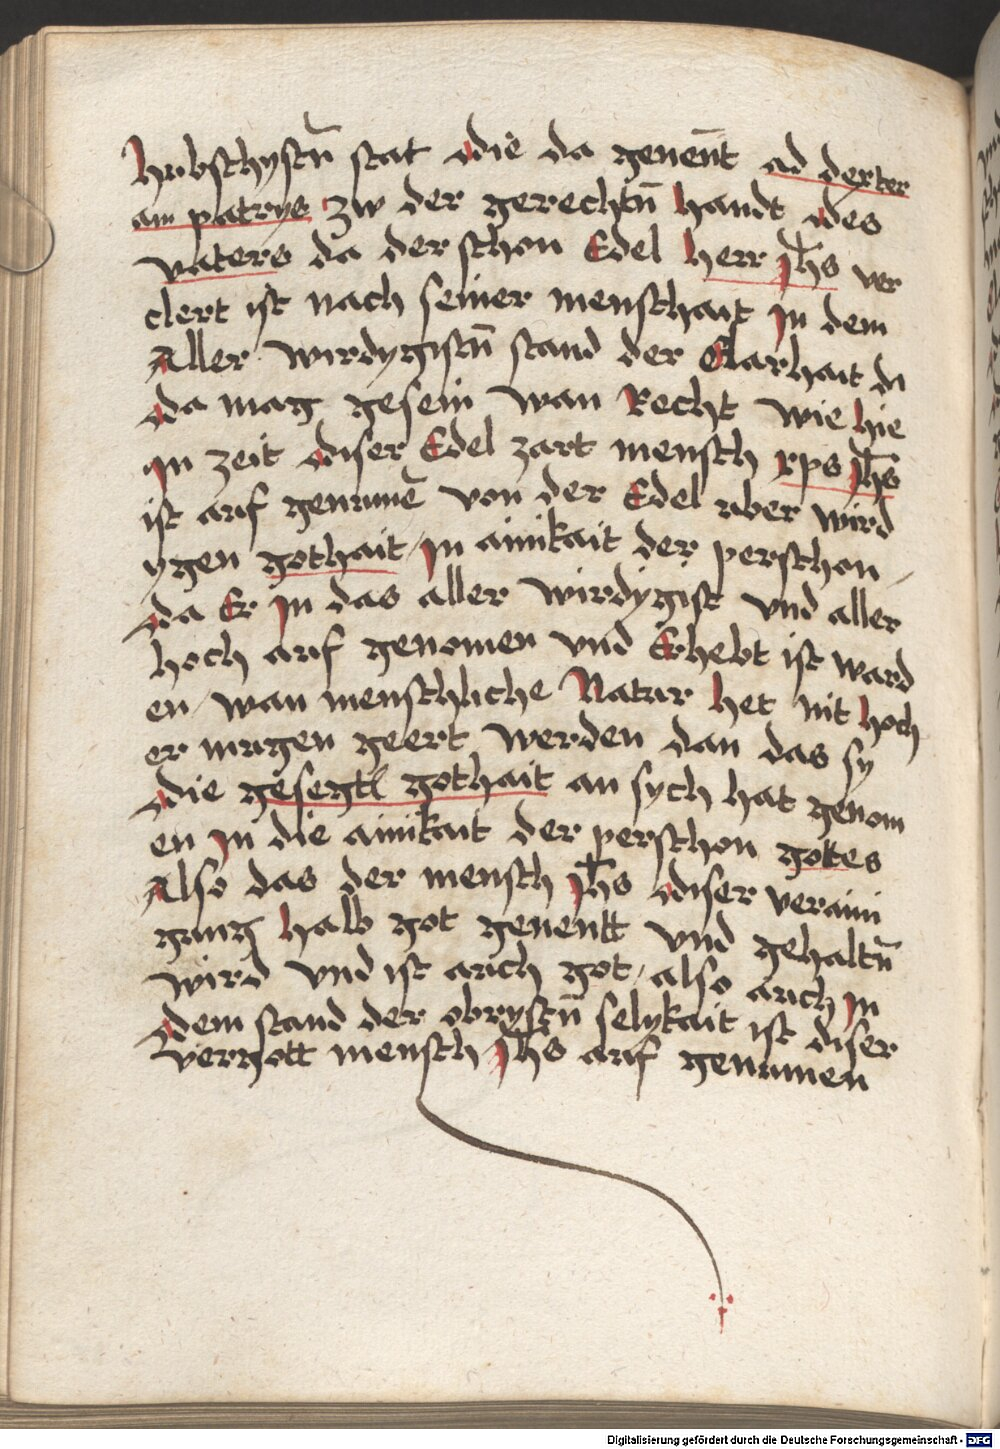 hubschystn̄ stat die da genen̄t ad dexter
am patrys zw der gerechtn̄ handt des
vaters da der schon Edel herr jh̄s ver
clert ist nach seiner menschait jn dem
Aller wirdygistn̄ stand der Clarhait di
da mag gesein wan Recht wie hie
jn zeit diser Edel zart mensch xps jh̄s
ist auf genumē von der Edel vber wird
ygen gothait / jn ainikait der perschon /
da Er jn das aller wirdygist vnd aller
hoch auf genomen vnd Erhebt ist ward
en / wan menschliche Natur het nit hoch
er mugen geert werden dan das sy
die gesegtl gothait an sych hat genom
en jn die ainikait der perschon gottes
Also das der mensch jh̄s diser veraini
gung halb got genentt vnd gehaltn̄
wird vnd ist auch got / also auch jn
dem stand der obrystn̄ selykait ist diser
vergott mensch jh̄s auf genumen
Digitalisierung gefördert durch die Deutsche Forschungsgemeinschaft - DFG